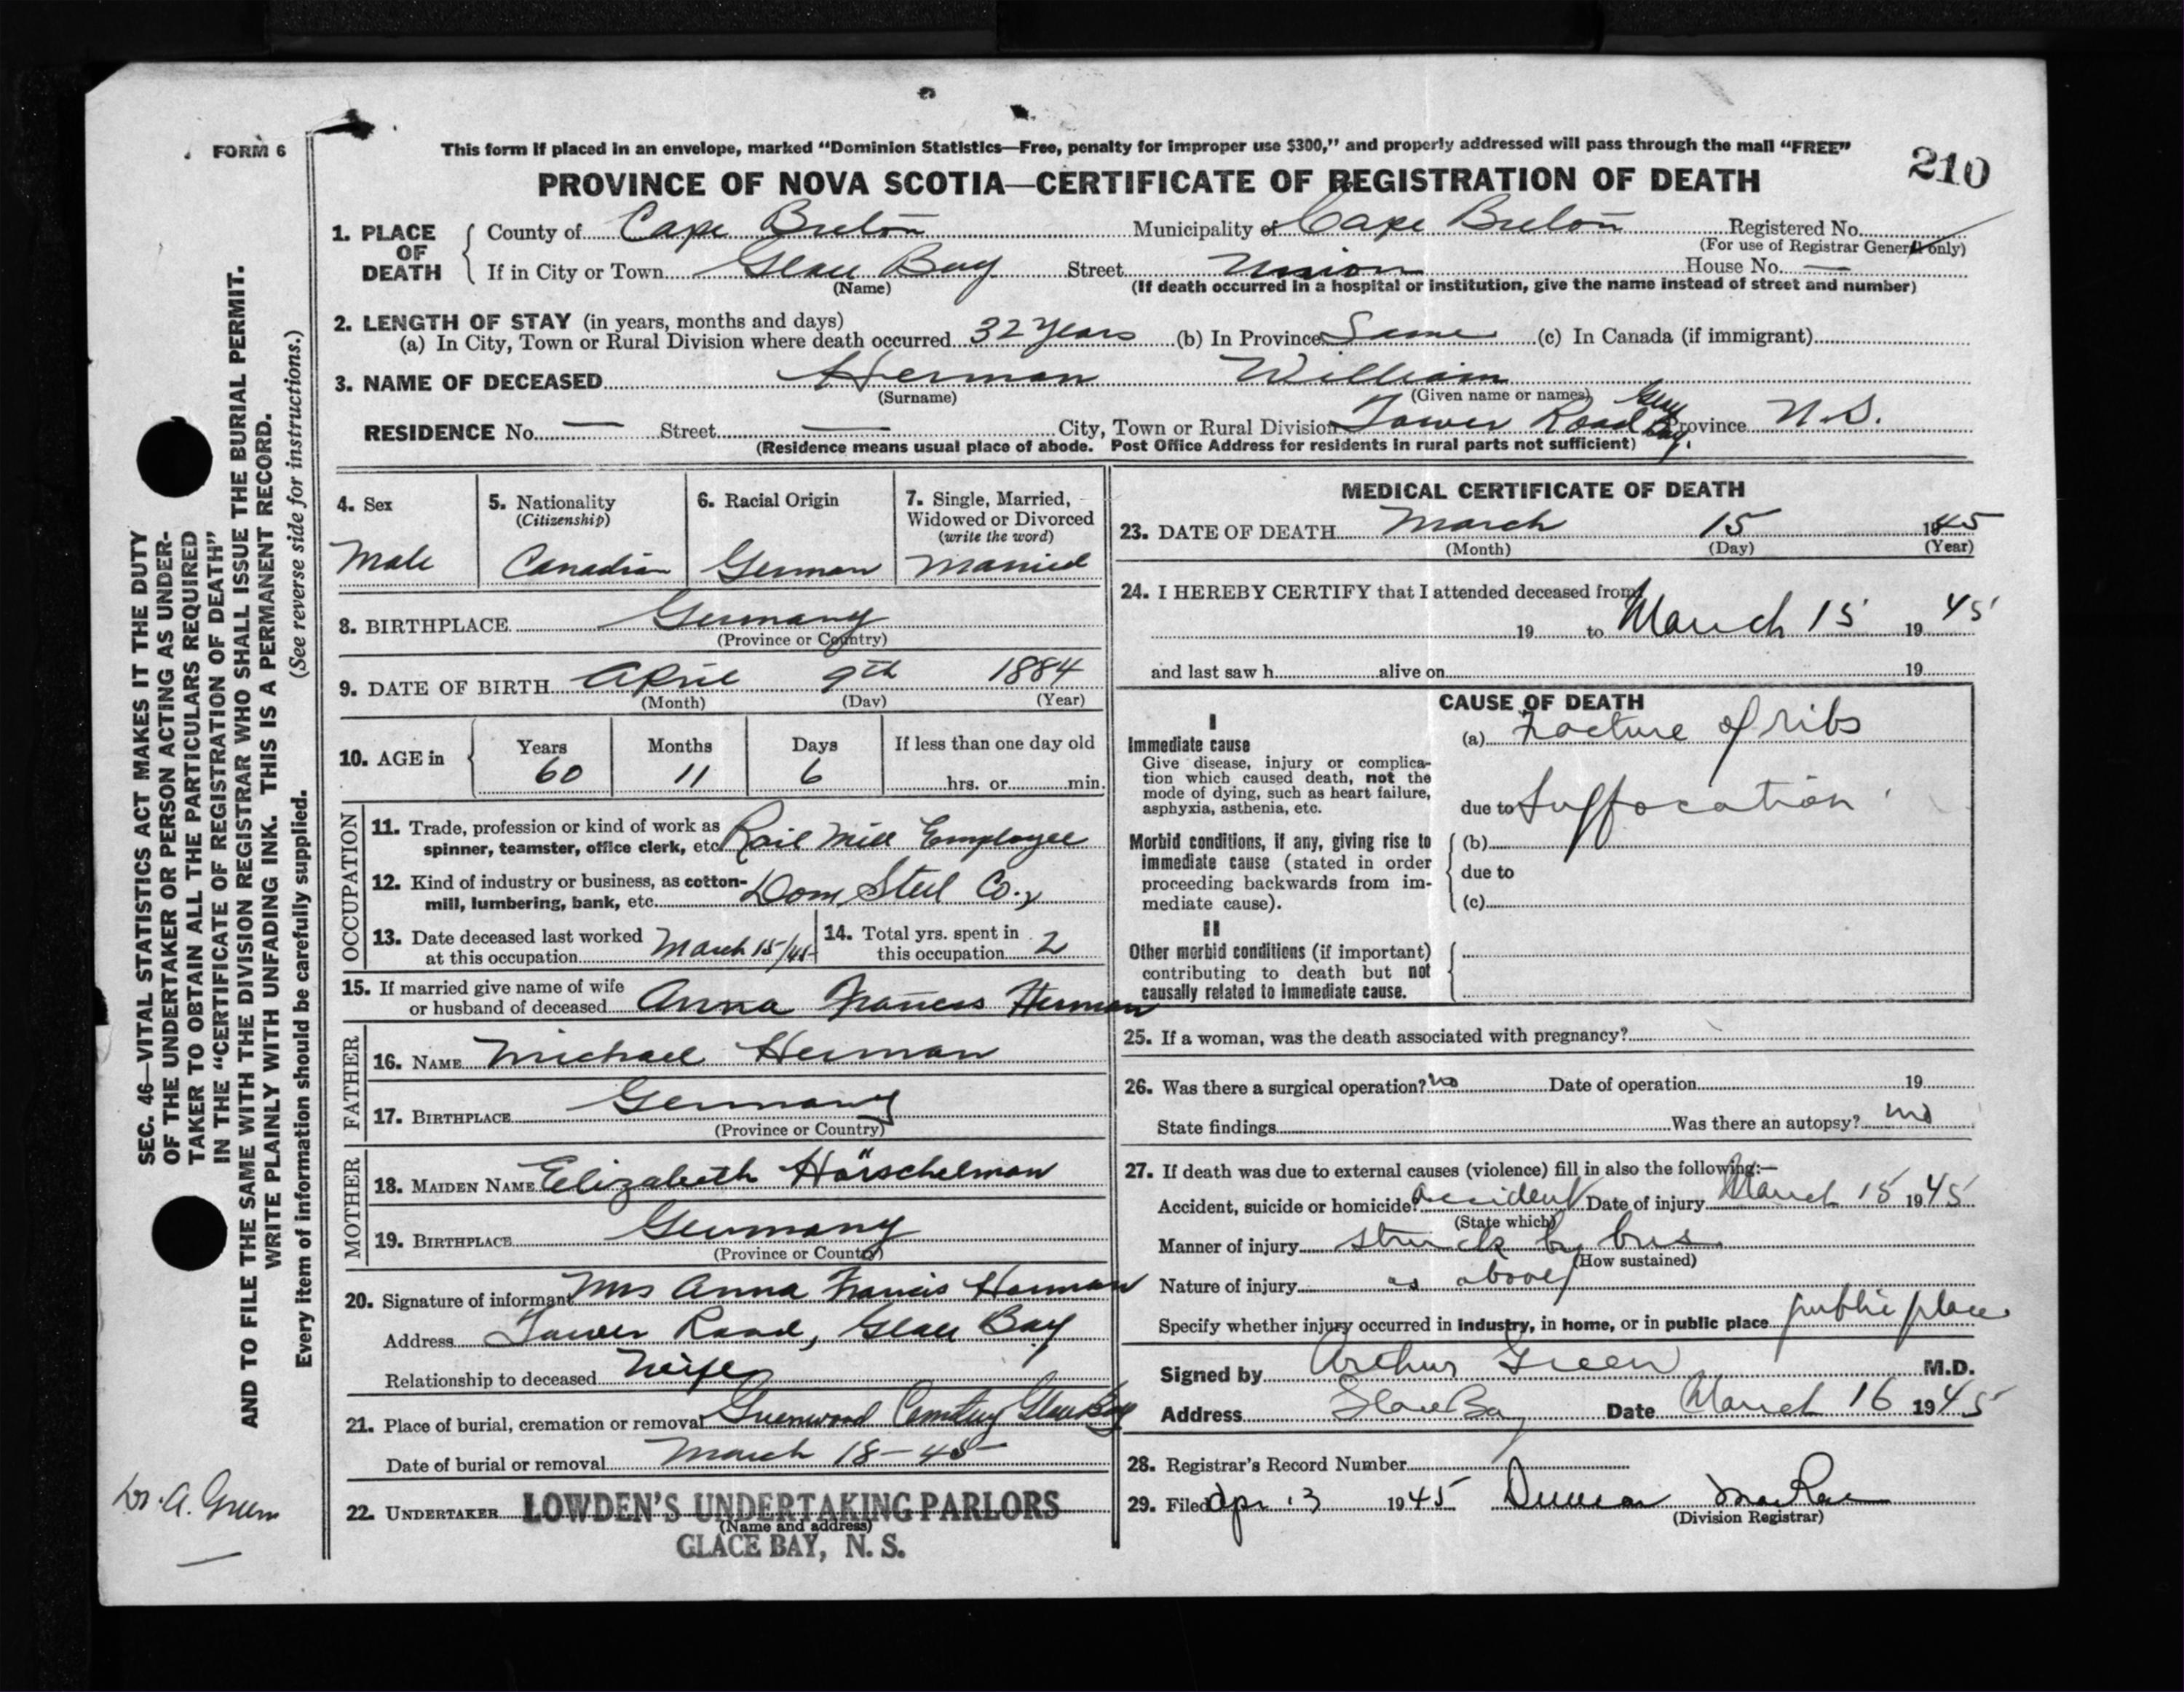 FORM 6
This form if placed in an envelope, marked "Dominion Statistics—Free, penalty for improper use $300," and properly addressed will pass through the mail "FREE"
210
PROVINCE OF NOVA SCOTIA—CERTIFICATE OF REGISTRATION OF DEATH
1. PLACE OF DEATH
County of Cape Breton Municipality of Cape Breton Registered No.
(For use of Registrar General only)
If in City or Town Glace Bay Street Union House No. —
(Name) (If death occurred in a hospital or institution, give the name instead of street and number)
2. LENGTH OF STAY (in years, months and days)
(a) In City, Town or Rural Division where death occurred 32 Years (b) In Province Same (c) In Canada (if immigrant)
3. NAME OF DECEASED Herman William
(Surname) (Given name or names)
RESIDENCE No. — Street — City, Town or Rural Division Tower Road Glace Bay. Province N.S.
(Residence means usual place of abode. Post Office Address for residents in rural parts not sufficient)
4. Sex
Male
5. Nationality
(Citizenship)
Canadian
6. Racial Origin
German
7. Single, Married,
Widowed or Divorced
(write the word)
Married
8. BIRTHPLACE Germany
(Province or Country)
9. DATE OF BIRTH April 9th 1884
(Month) (Day) (Year)
10. AGE in
Years Months Days If less than one day old
60 11 6 hrs. or min.
OCCUPATION
11. Trade, profession or kind of work as
spinner, teamster, office clerk, etc. Rail Mill Employee
12. Kind of industry or business, as cotton-
mill, lumbering, bank, etc. Dom. Steel Co.,
13. Date deceased last worked
at this occupation March 15/45
14. Total yrs. spent in
this occupation 2
15. If married give name of wife
or husband of deceased Anna Frances Herman
FATHER
16. NAME Michael Herman
17. BIRTHPLACE Germany
(Province or Country)
MOTHER
18. MAIDEN NAME Elizabeth Hörschelman
19. BIRTHPLACE Germany
(Province or Country)
20. Signature of informant Mrs Anna Francis Herman
Address Tower Road, Glace Bay
Relationship to deceased Wife
21. Place of burial, cremation or removal Greenwood Cemetery Glace Bay
Date of burial or removal March 18-45
22. UNDERTAKER LOWDEN'S UNDERTAKING PARLORS
(Name and address)
GLACE BAY, N. S.
MEDICAL CERTIFICATE OF DEATH
23. DATE OF DEATH March 15 1945
(Month) (Day) (Year)
24. I HEREBY CERTIFY that I attended deceased from
19 to March 15 19 45
and last saw h alive on 19
CAUSE OF DEATH
I
Immediate cause
Give disease, injury or complica-
tion which caused death, not the
mode of dying, such as heart failure,
asphyxia, asthenia, etc.
(a) Fracture of ribs
due to Suffocation
Morbid conditions, if any, giving rise to
immediate cause (stated in order
proceeding backwards from im-
mediate cause).
(b)
due to
(c)
II
Other morbid conditions (if important)
contributing to death but not
causally related to immediate cause.
25. If a woman, was the death associated with pregnancy?
26. Was there a surgical operation? no Date of operation 19
State findings Was there an autopsy? no
27. If death was due to external causes (violence) fill in also the following:—
Accident, suicide or homicide? accident Date of injury March 15 1945
(State which)
Manner of injury struck by bus
(How sustained)
Nature of injury as above
Specify whether injury occurred in industry, in home, or in public place public place
Signed by Arthur Green M.D.
Address Glace Bay Date March 16 1945
28. Registrar's Record Number
29. Filed Apr. 3 1945 Duncan MacRae
(Division Registrar)
SEC. 46—VITAL STATISTICS ACT MAKES IT THE DUTY
OF THE UNDERTAKER OR PERSON ACTING AS UNDER-
TAKER TO OBTAIN ALL THE PARTICULARS REQUIRED
IN THE "CERTIFICATE OF REGISTRATION OF DEATH"
AND TO FILE THE SAME WITH THE DIVISION REGISTRAR WHO SHALL ISSUE THE BURIAL PERMIT.
WRITE PLAINLY WITH UNFADING INK. THIS IS A PERMANENT RECORD.
Every item of information should be carefully supplied. (See reverse side for instructions.)
Dr. A. Green